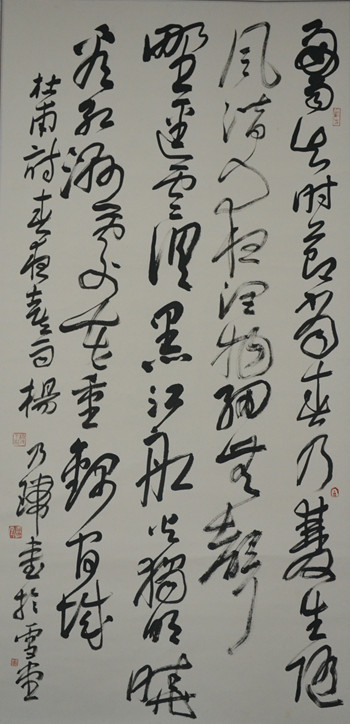 好雨知时節當春乃發生随
風潜入夜润物細無聲
野逕雲俱黑江船火獨明曉
看红濕處花重錦官城
杜甫詩春夜喜雨楊乃瑋書於雪堂